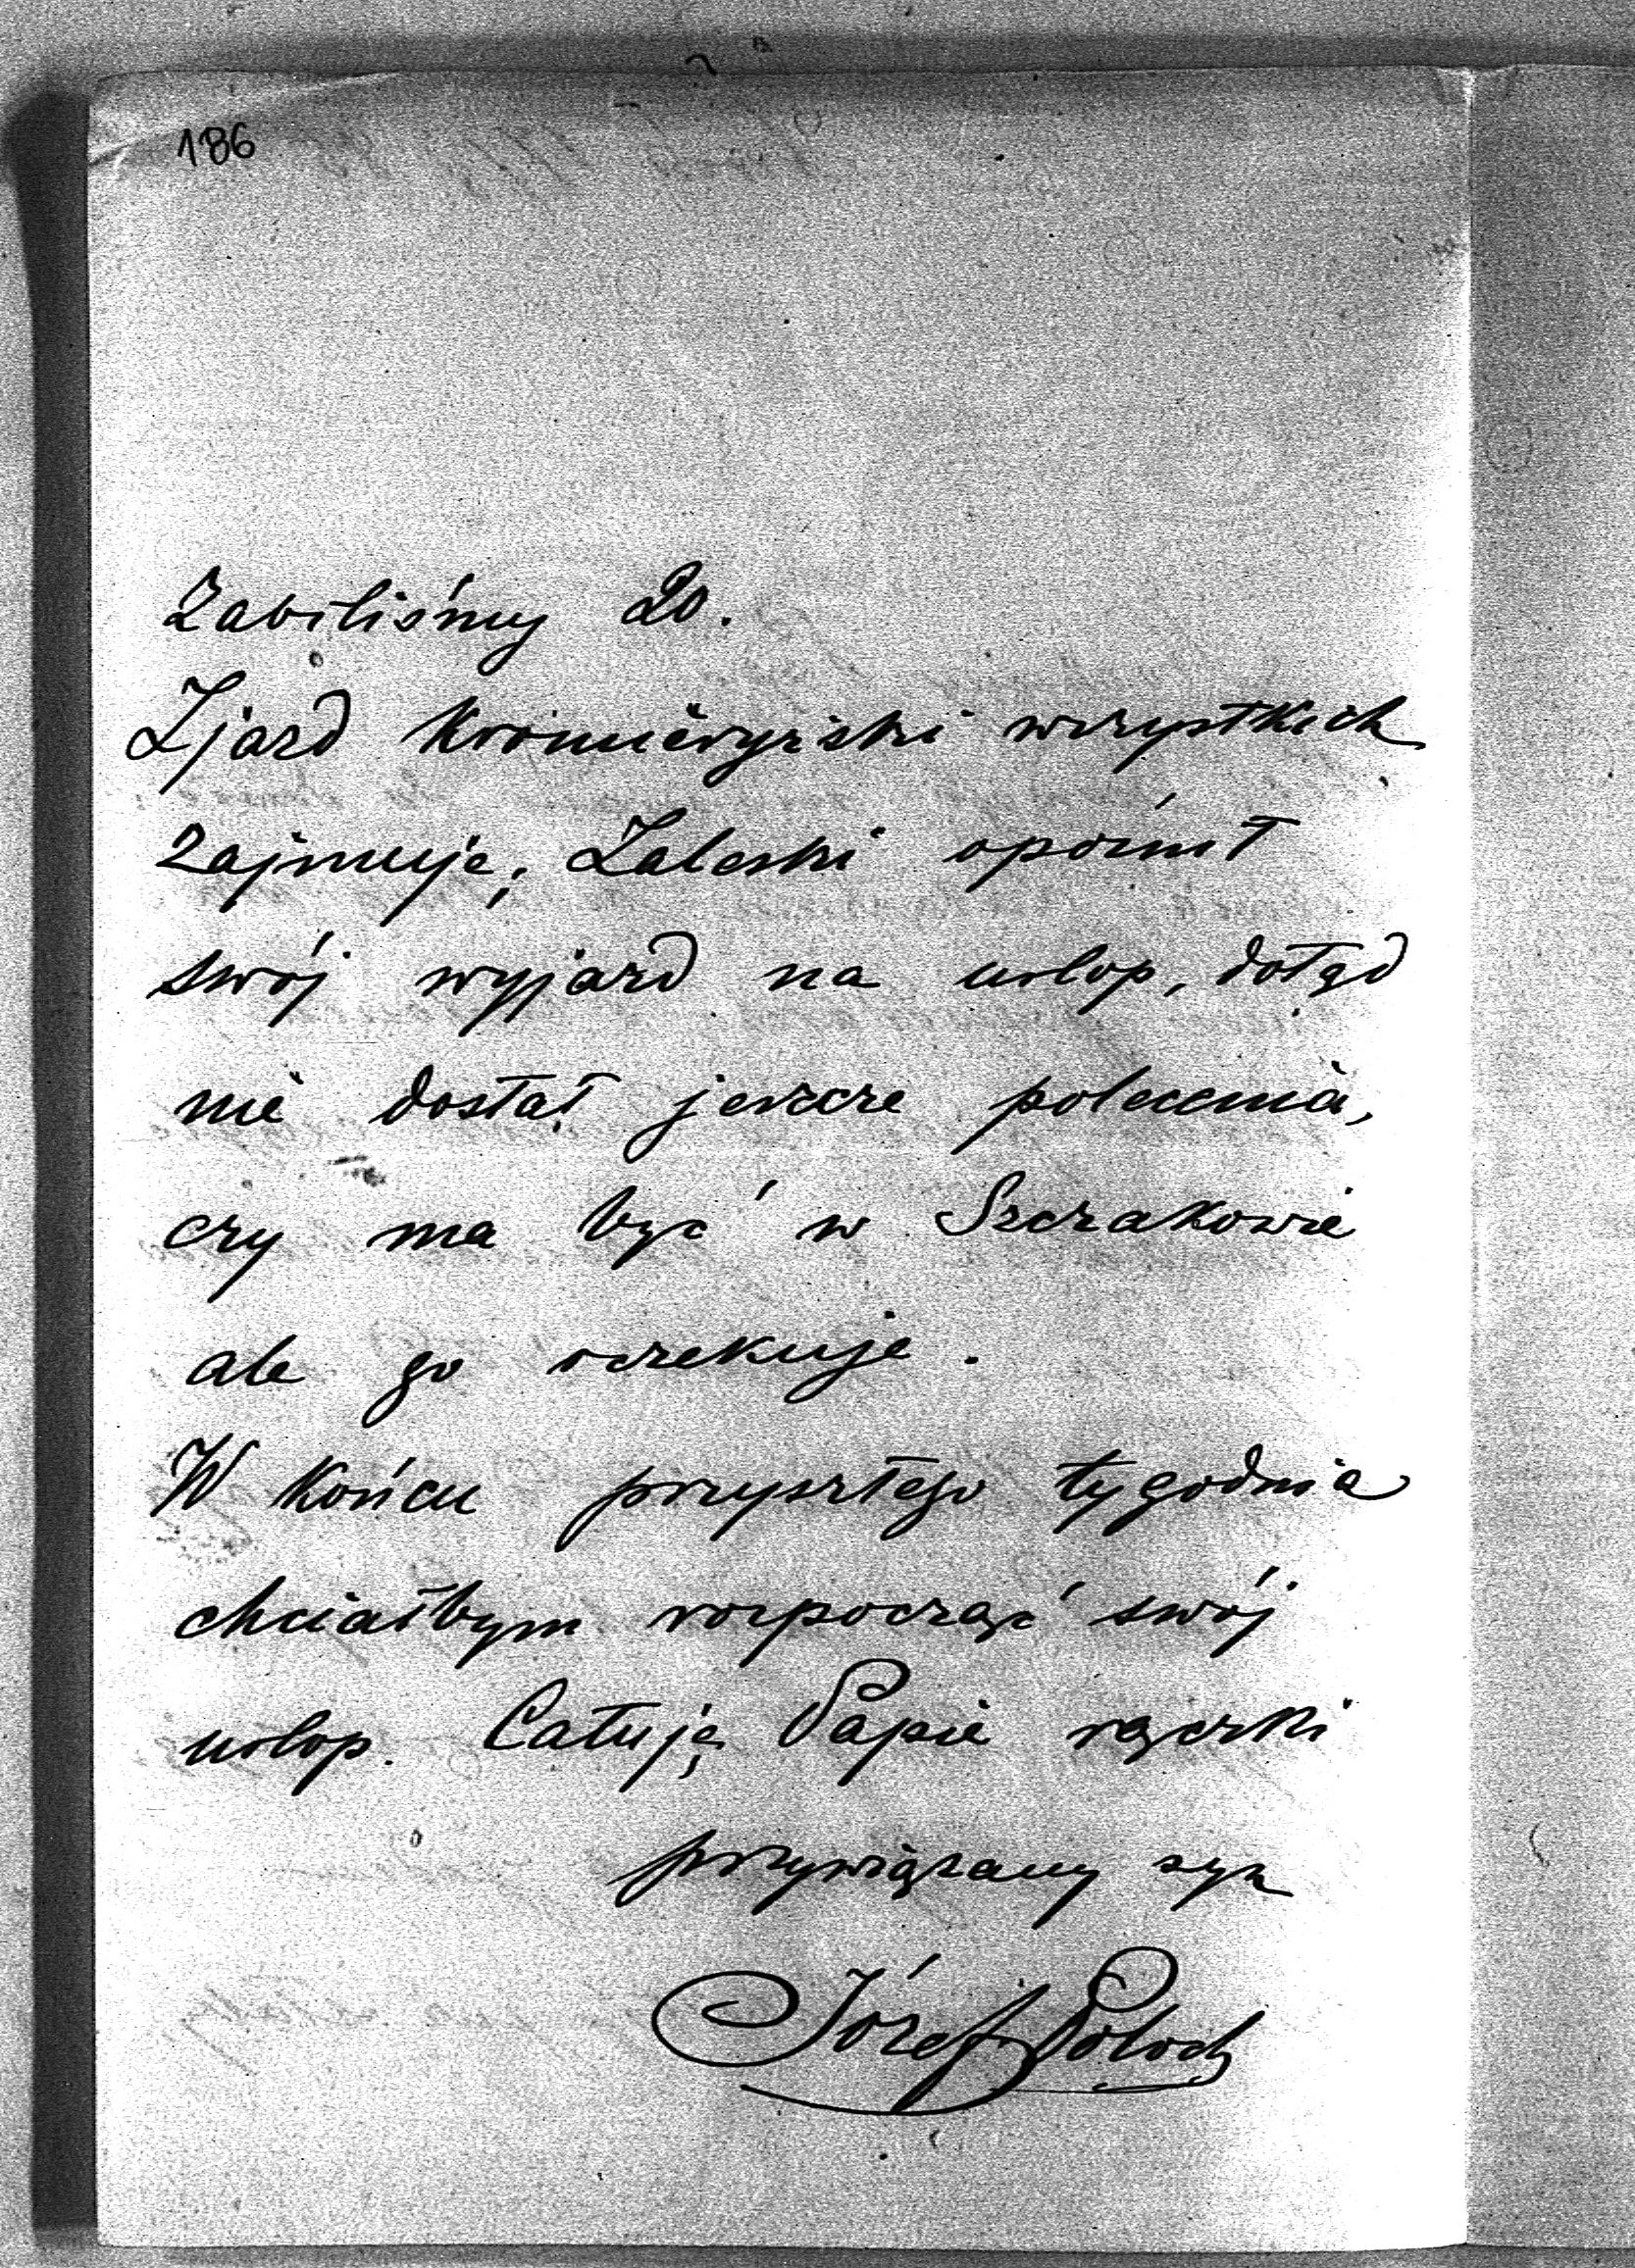 186
Zabiliśmy 20.
Zjazd kromieryżski wszystkich
zajmuje; Zaleski opóźnił
swój wyjazd na urlop, dotąd
nie dostał jeszcze polecenia,
czy ma być w Szczakowie
ale go oczekuje.
W końcu przyszłego tygodnia
chciałbym rozpocząć swój
urlop. Całuję Papie rączki
przywiązany syn
Józef